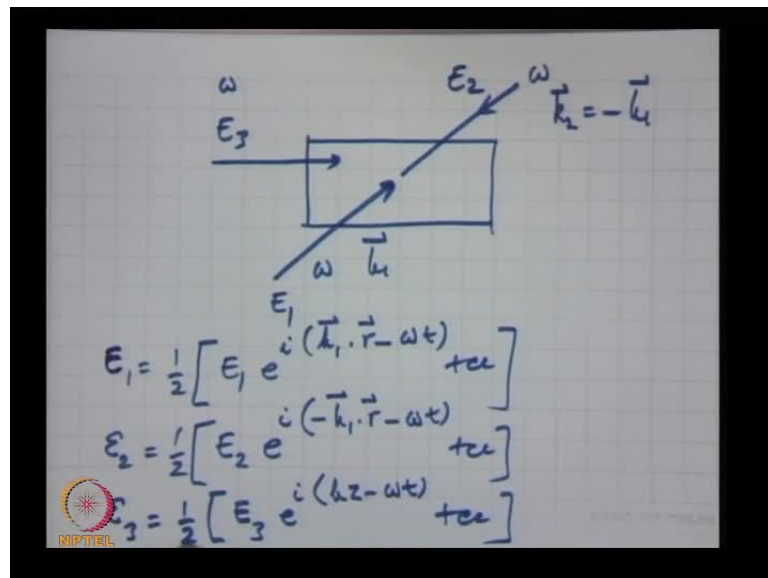 ω E₂ ω
E₃ k⃗₂ = −k⃗₁
ω k⃗₁
E₁
ℰ₁ = 1/2 [ E₁ e^{i(k⃗₁·r⃗ − ωt)} + cc ]
ℰ₂ = 1/2 [ E₂ e^{i(−k⃗₁·r⃗ − ωt)} + cc ]
ℰ₃ = 1/2 [ E₃ e^{i(kz − ωt)} + cc ]
NPTEL